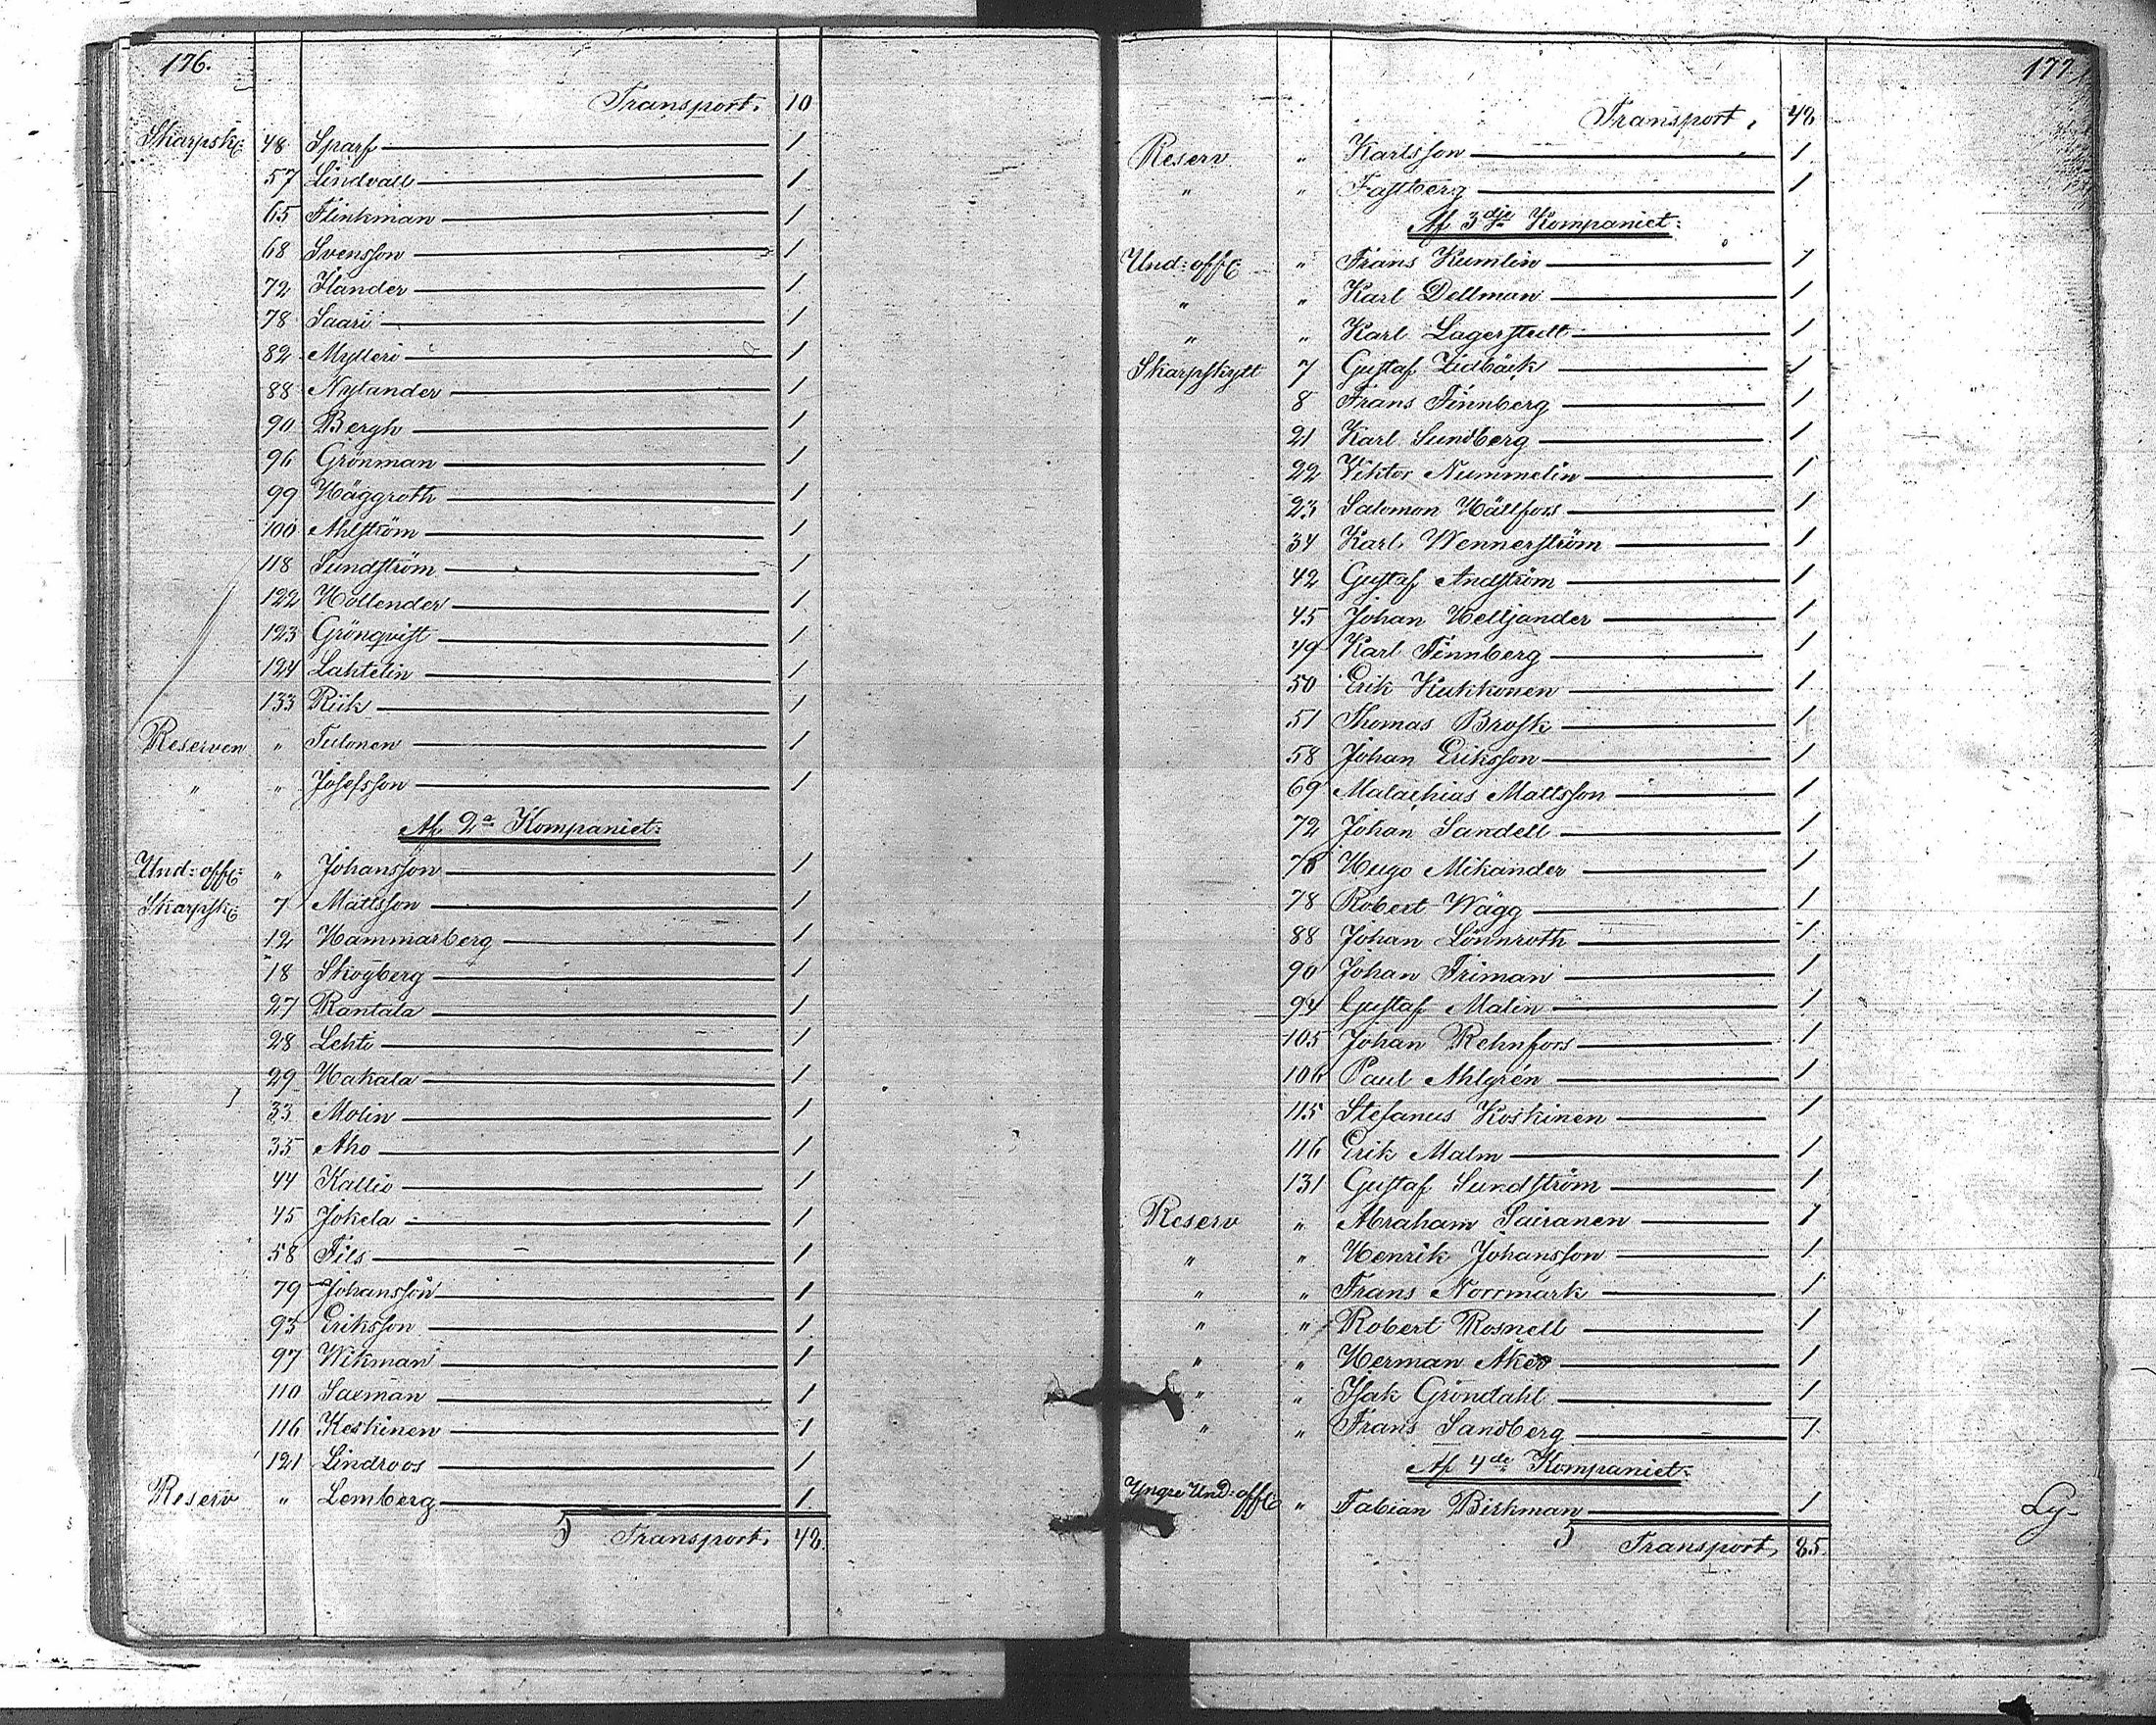 176.
Transport. 10
Skarpsk: 48 Sparf 1
57 Lindvall 1
65 Flinkman 1
68 Svensson 1
72 Flander 1
78 Saari 1
82 Mylleri 1
88 Nylander 1
90 Bergh 1
96 Grönman 1
99 Häggroth 1
100 Ahlström 1
118 Sundström 1
122 Hollender 1
123 Grönqvist 1
124 Lahtelin 1
133 Riik 1
Reserven " Tulonen 1
" " Josefsson 1
Af 2a Kompaniet:
Und:off: " Johansson 1
Skarpsk: 7 Mattsson 1
12 Hammarberg 1
18 Skogberg 1
27 Rantala 1
28 Lehti 1
29 Hakala 1
33 Molin 1
35 Aho 1
44 Kallio 1
45 Jokela 1
58 Fils 1
79 Johansson 1
95 Eriksson 1
97 Wikman 1
110 Saxman 1
116 Keskinen 1
121 Lindroos 1
Reserv " Lemberg 1
Transport. 48.
177.
Transport. 48
Reserv " Karlsson 1
" " Fastberg 1
Af 3dje Kompaniet:
Und:off: " Frans Kumlin 1
" " Karl Dellman 1
" " Karl Lagerstedt 1
Skarpskytt 7 Gustaf Lidbäck 1
8 Frans Finnberg 1
21 Karl Sundberg 1
22 Viktor Nummelin 1
23 Salomon Hällfors 1
34 Karl Wennerström 1
42 Gustaf Andström 1
45 Johan Helljander 1
49 Karl Finnberg 1
50 Erik Kukkonen 1
51 Thomas Brosk 1
58 Johan Eriksson 1
69 Malachias Mattsson 1
72 Johan Sandell 1
Hugo Mikander 1
78 Robert Wägg 1
88 Johan Lönnroth 1
90 Johan Friman 1
94 Gustaf Malin 1
105 Johan Rehnfors 1
106 Paul Ahlgrén 1
115 Stefanus Koskinen 1
116 Erik Malm 1
131 Gustaf Sundström 1
Reserv " Abraham Sairanen 1
" " Henrik Johansson 1
" " Frans Norrmark 1
" " Robert Rosnell 1
" " Herman 1
" " Isak Gröndahl 1
" " Frans Sandberg 1
Af 4de Kompaniet:
Yngre Und:off: " Fabian Birkman 1
Transport, 85.
Ly-